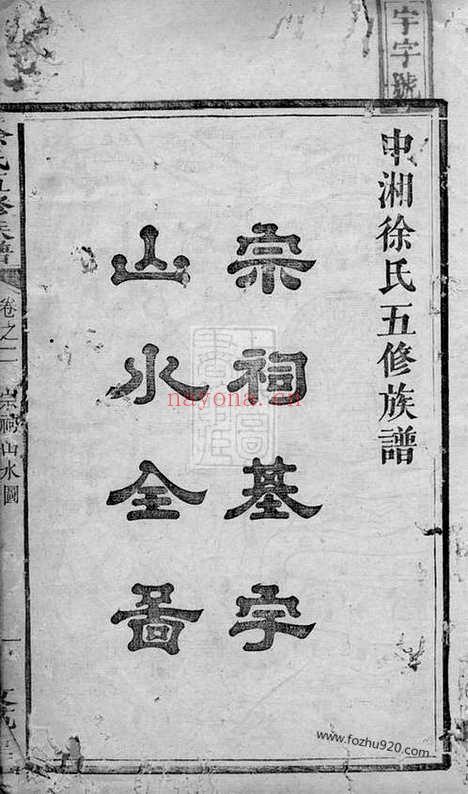 宇字號
中湘徐氏五修族譜
宗祠基宇
山水全啚
徐氏五修族譜
卷之一
宗祠山水圖
一
nayona.cn
www.fozhu920.com